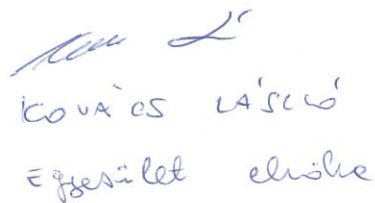 KOVÁCS LÁSZLÓ
Egyesület elnöke